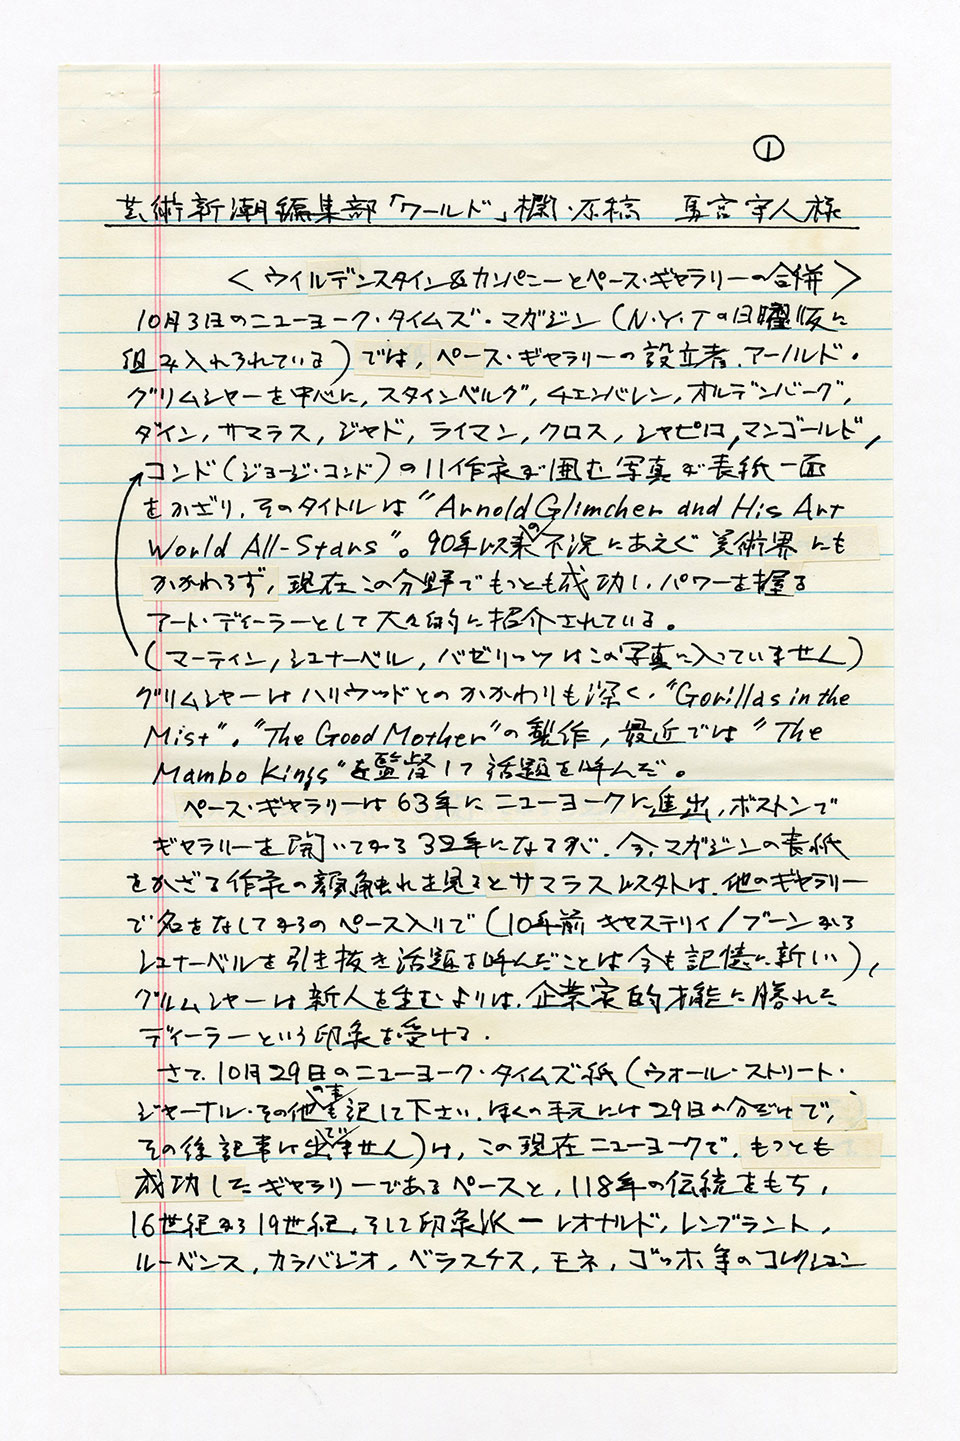 ①
芸術新潮編集部「ワールド」欄・原稿　馬宮守人様
＜ウイルデンスタイン&カンパニーとペース・ギャラリーの合併＞
10月3日のニューヨーク・タイムズ・マガジン（N.Y.Tの日曜版に
組み入れられている）では，ペース・ギャラリーの設立者，アーノルド・
グリムシャーを中心に，スタインベルグ，チェンバレン，オルデンバーグ，
ダイン，サマラス，ジャド，ライマン，クロス，シャピロ，マンゴールド，
コンド（ジョージ・コンド）の11作家が囲む写真が表紙一面
をかざり，そのタイトルは “Arnold Glimcher and His Art
World All-Stars”。90年以来の不況にあえぐ美術界にも
かかわらず，現在この分野でもっとも成功し，パワーを握る
アート・ディーラーとして大々的に紹介されている。
（マーティン，シュナーベル，バゼリッツはこの写真に入っていません）
グリムシャーはハリウッドとのかかわりも深く，“Gorillas in the
Mist”，“The Good Mother”の製作，最近では“The
Mambo Kings”を監督して話題を呼んだ。
ペース・ギャラリーは63年にニューヨークに進出，ボストンで
ギャラリーを開いてから32年になるが，今，マガジンの表紙
をかざる作家の顔触れを見るとサマラス以外は，他のギャラリー
で名をなしてからのペース入りで（10年前キャステリィ/ブーンから
シュナーベルを引き抜き話題を呼んだことは今も記憶に新しい），
グルムシャーは新人を生むよりは，企業家的才能に勝れた
ディーラーという印象を受ける．
さて，10月29日のニューヨーク・タイムズ紙（ウォール・ストリート・
ジャーナル・その他の事も記して下さい．ぼくの手元には29日の分だけで，
その後記事は出ていません）は，この現在ニューヨークで，もっとも
成功したギャラリーであるペースと，118年の伝統をもち，
16世紀から19世紀，そして印象派ー レオナルド，レンブラント，
ルーベンス，カラバジオ，ベラスケス，モネ，ゴッホ等のコレクション